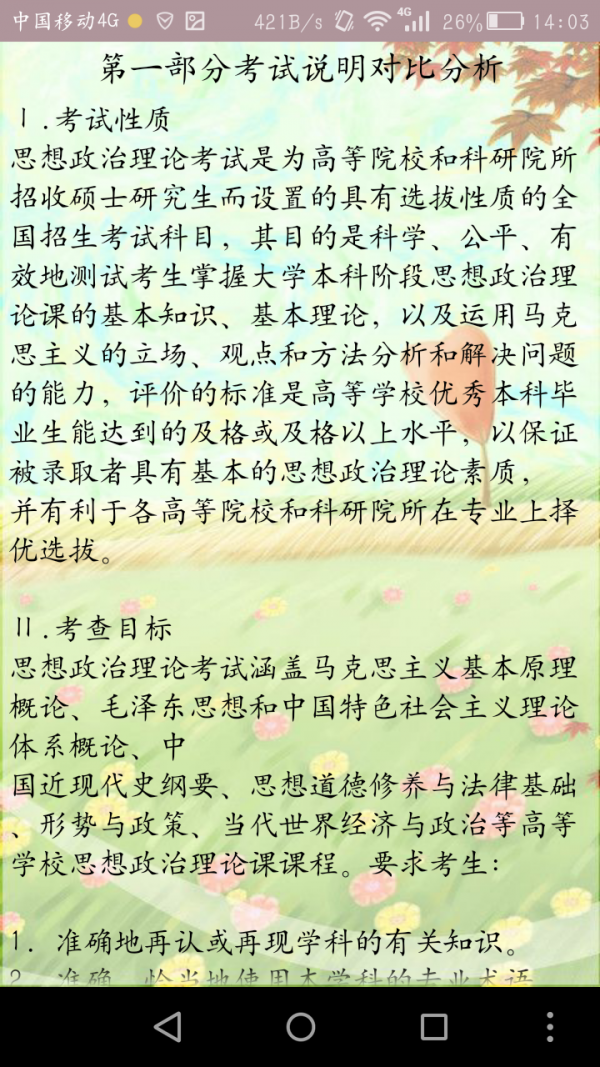 中国移动4G 421B/s 4G 26% 14:03
第一部分考试说明对比分析
Ⅰ.考试性质
思想政治理论考试是为高等院校和科研院所
招收硕士研究生而设置的具有选拔性质的全
国招生考试科目，其目的是科学、公平、有
效地测试考生掌握大学本科阶段思想政治理
论课的基本知识、基本理论，以及运用马克
思主义的立场、观点和方法分析和解决问题
的能力，评价的标准是高等学校优秀本科毕
业生能达到的及格或及格以上水平，以保证
被录取者具有基本的思想政治理论素质，
并有利于各高等院校和科研院所在专业上择
优选拔。
Ⅱ.考查目标
思想政治理论考试涵盖马克思主义基本原理
概论、毛泽东思想和中国特色社会主义理论
体系概论、中
国近现代史纲要、思想道德修养与法律基础
、形势与政策、当代世界经济与政治等高等
学校思想政治理论课课程。要求考生：
1. 准确地再认或再现学科的有关知识。
2. 准确、恰当地使用本学科的专业术语